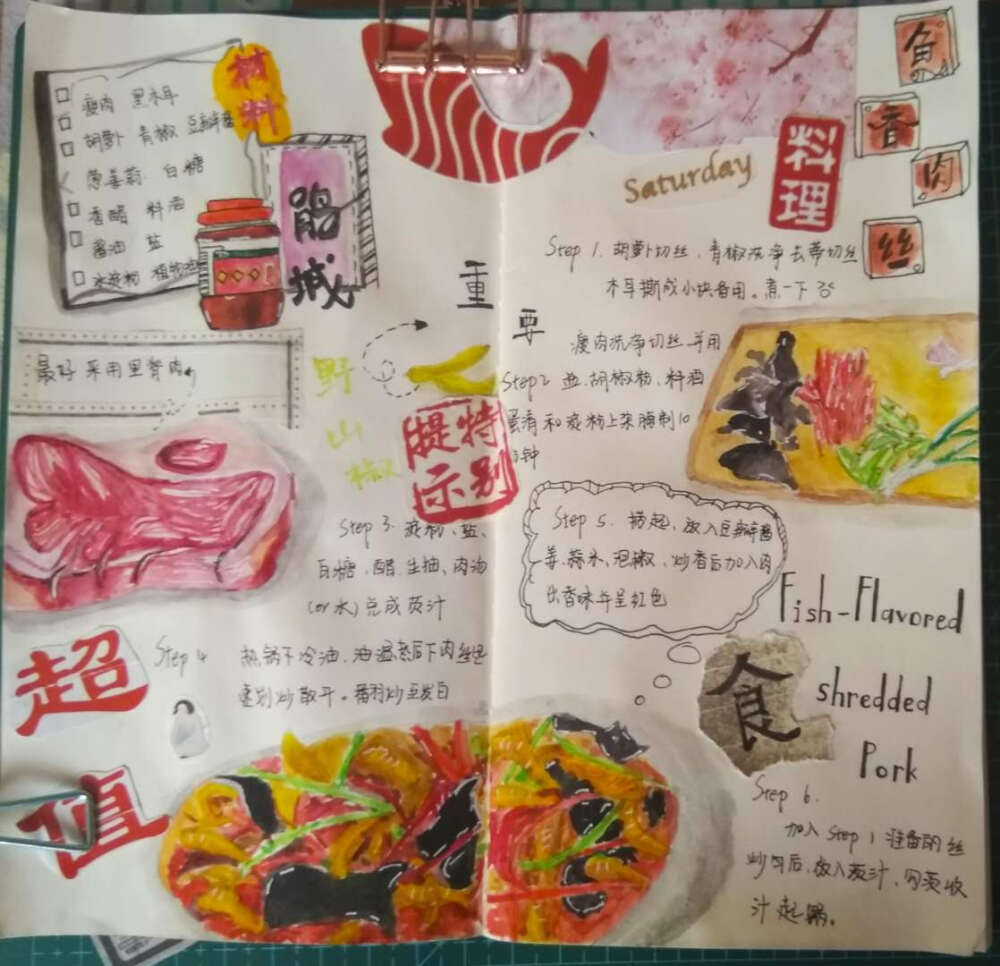 材料
瘦肉 黑木耳
胡萝卜 青椒 豆瓣酱
葱姜蒜 白糖
香醋 料酒
酱油 盐
水淀粉 植物油
鹃城
最好采用里脊肉
重要
野山椒
特别提示
Saturday
料理
鱼香肉丝
Step 1. 胡萝卜切丝,青椒洗净去蒂切丝
木耳撕成小块备用。煮一下
瘦肉洗净切丝并用
Step 2 盐、胡椒粉、料酒
蛋清和淀粉上浆腌制10
分钟
Step 3. 淀粉、盐、
白糖、醋、生抽、肉汤
(or水)兑成芡汁
Step 4 热锅下冷油,油温热后下肉丝迅
速划炒散开。翻炒至发白
Step 5. 捞起,放入豆瓣酱
姜、蒜末、泡椒,炒香后加入肉
出香味并呈红色
Fish-Flavored
shredded
Pork
食
超值
Step 6.
加入 Step 1 准备的丝
炒匀后,放入芡汁,勾芡收
汁起锅。